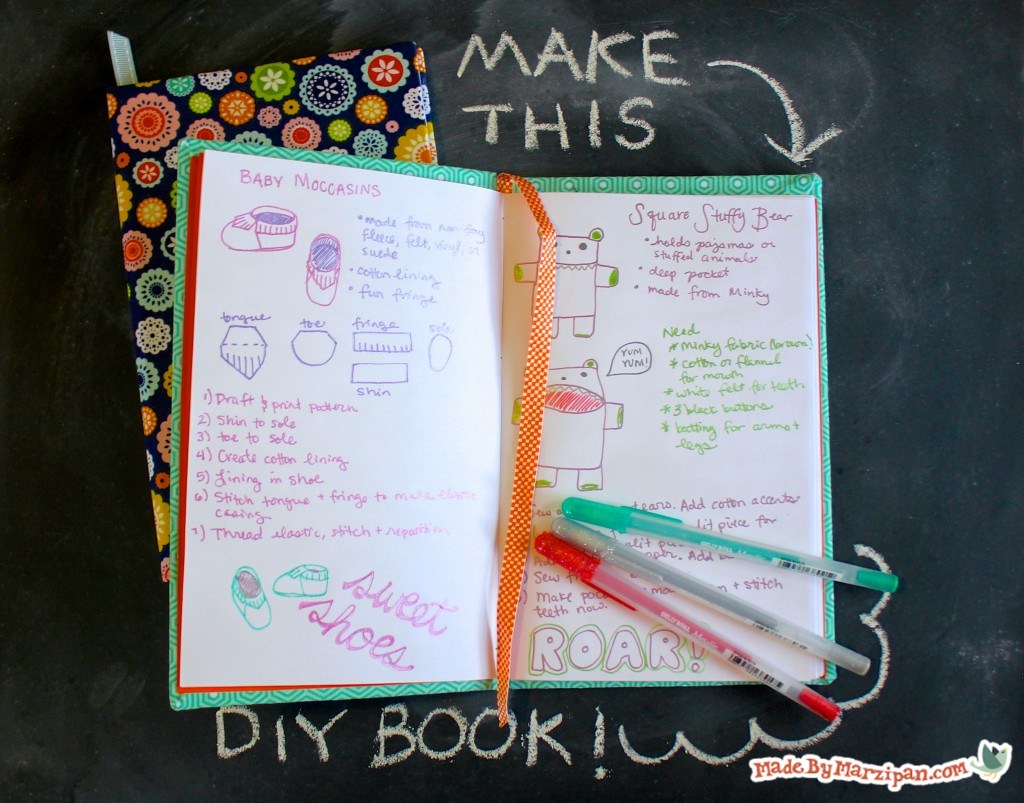 MAKE
THIS
BABY MOCCASINS
• made from non-fray
fleece, felt, vinyl, or
suede
• cotton lining
• fun fringe
tongue
toe
fringe
sole
shin
1) Draft & print pattern
2) Shin to sole
3) toe to sole
4) Create cotton lining
5) Lining in shoe
6) Stitch tongue + fringe to make elastic
casing.
7) Thread elastic, stitch + reposition
sweet
shoes
Square Stuffy Bear
• holds pajamas or
stuffed animals
• deep pocket
• made from Minky
YUM
YUM!
Need
* minky fabric (brown)
* cotton or flannel
for mouth
* white felt for teeth
* 3 black buttons
* batting for arms +
legs
ears. Add cotton accents
piece for
Add
Sew
+ stitch
Make
teeth now.
ROAR!
DIY BOOK!
MadeByMarzipan.com